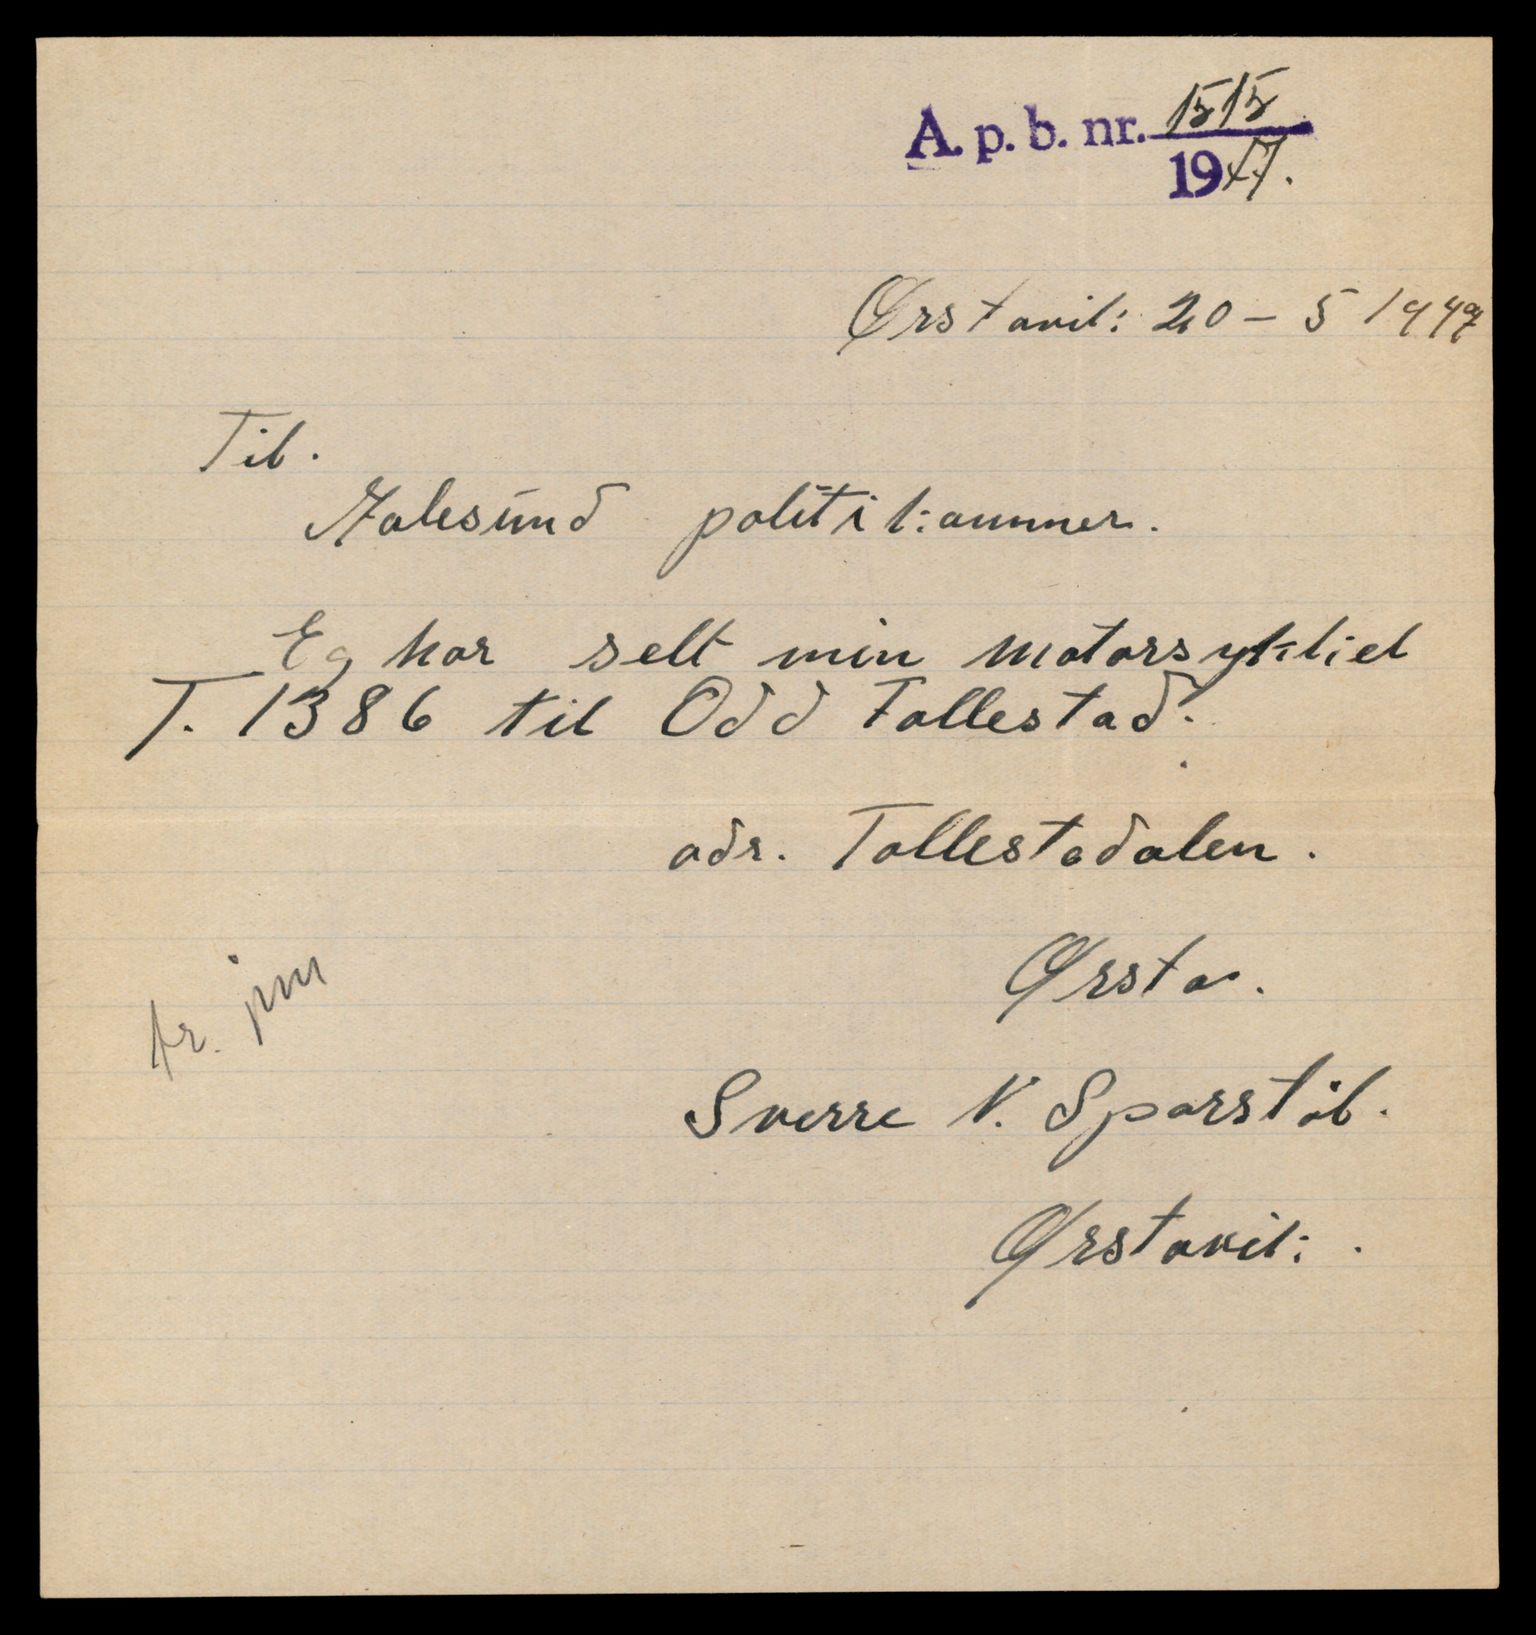 A. p. b. nr. 1515
1947.
Ørstavik 20 - 5 1947
Til.
Aalesund politikammer.
Eg har selt min motorsykkel
T. 1386 til Odd Follestad.
adr. Follestadalen.
Ørsta.
Sverre N. Sporstøl.
Ørstavik.